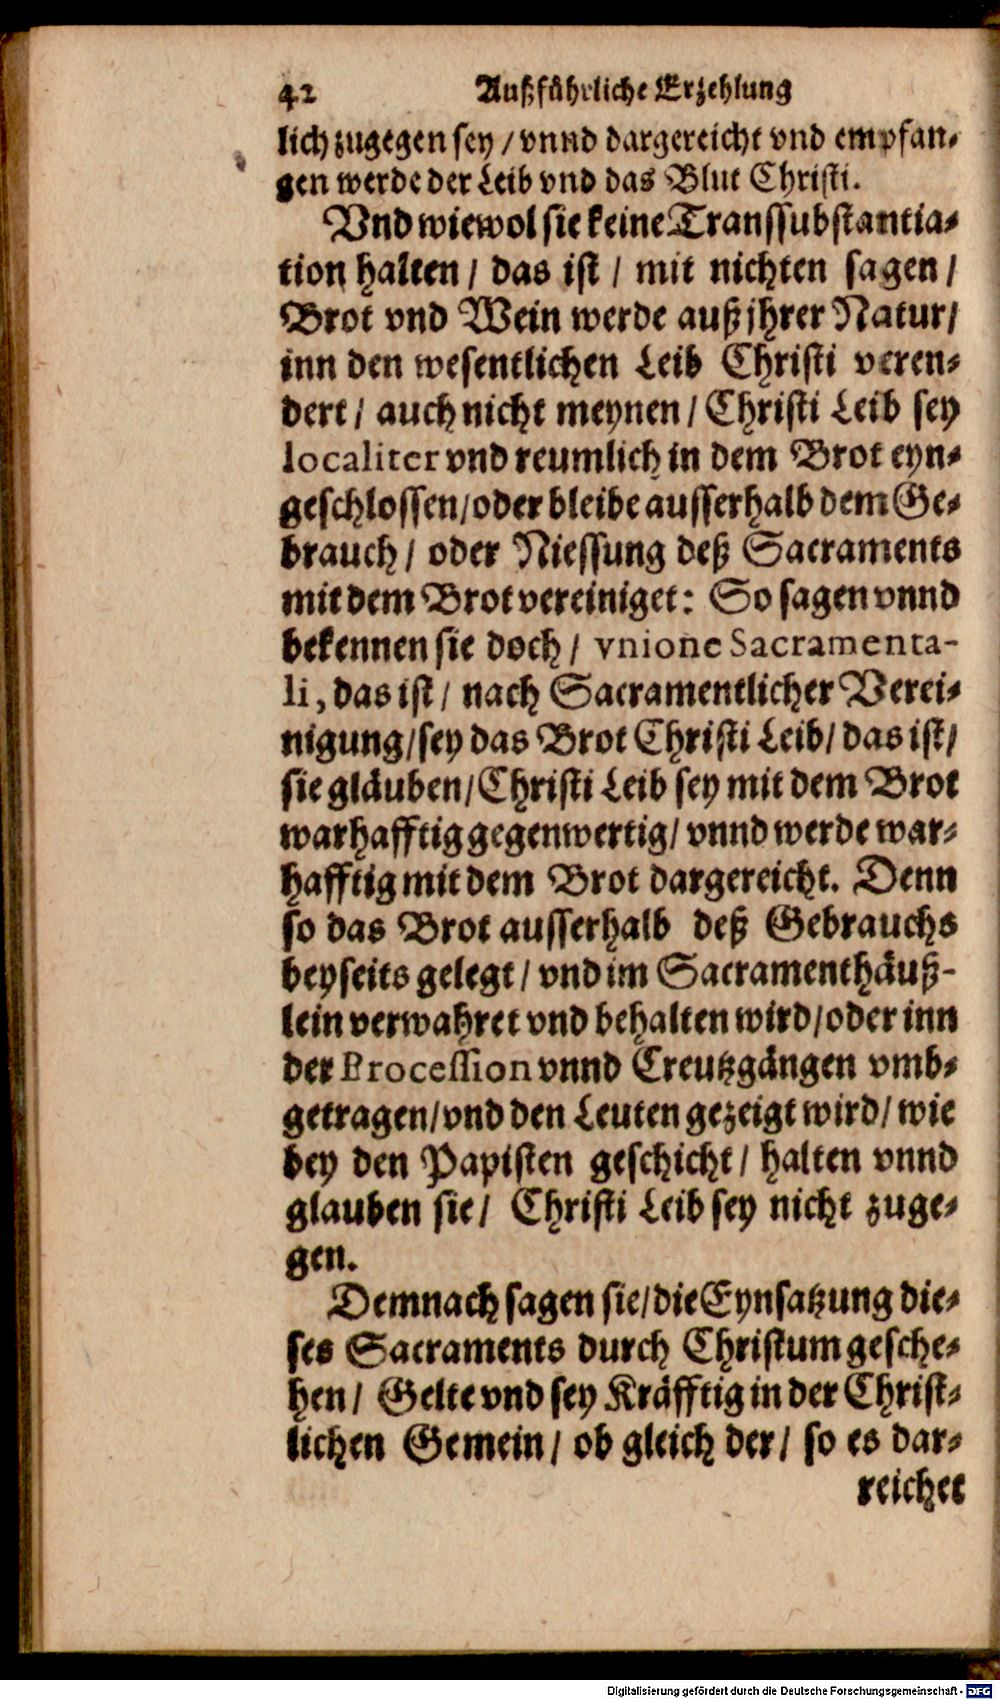 42 Außführliche Erzehlung
lich zugegen sey / vnnd dargereicht vnd empfan-
gen werde der Leib vnd das Blut Christi.
Vnd wiewol sie keine Transsubstantia-
tion halten / das ist / mit nichten sagen /
Brot vnd Wein werde auß jhrer Natur /
inn den wesentlichen Leib Christi veren-
dert / auch nicht meynen / Christi Leib sey
localiter vnd reumlich in dem Brot eyn-
geschlossen / oder bleibe ausserhalb dem Ge-
brauch / oder Niessung deß Sacraments
mit dem Brot vereiniget: So sagen vnnd
bekennen sie doch / vnione Sacramenta-
li, das ist / nach Sacramentlicher Verei-
nigung / sey das Brot Christi Leib / das ist /
sie gläuben / Christi Leib sey mit dem Brot
warhafftig gegenwertig / vnnd werde war-
hafftig mit dem Brot dargereicht. Denn
so das Brot ausserhalb deß Gebrauchs
beyseits gelegt / vnd im Sacramenthäuß-
lein verwahret vnd behalten wird / oder inn
der Procession vnnd Creutzgängen vmb-
getragen / vnd den Leuten gezeigt wird / wie
bey den Papisten geschicht / halten vnnd
glauben sie / Christi Leib sey nicht zuge-
gen.
Demnach sagen sie / die Eynsatzung die-
ses Sacraments durch Christum gesche-
hen / Gelte vnd sey Kräfftig in der Christ-
lichen Gemein / ob gleich der / so es dar-
reichet
Digitalisierung gefördert durch die Deutsche Forschungsgemeinschaft - DFG